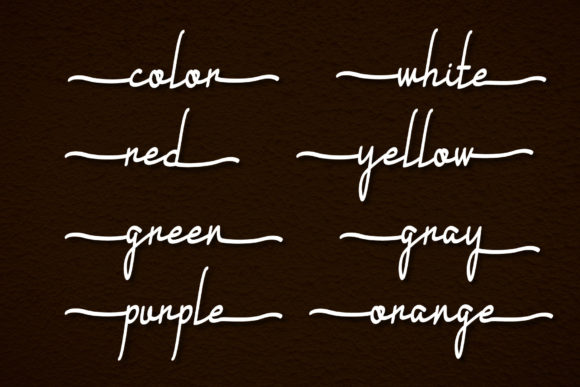 color white
red yellow
green gray
purple orange